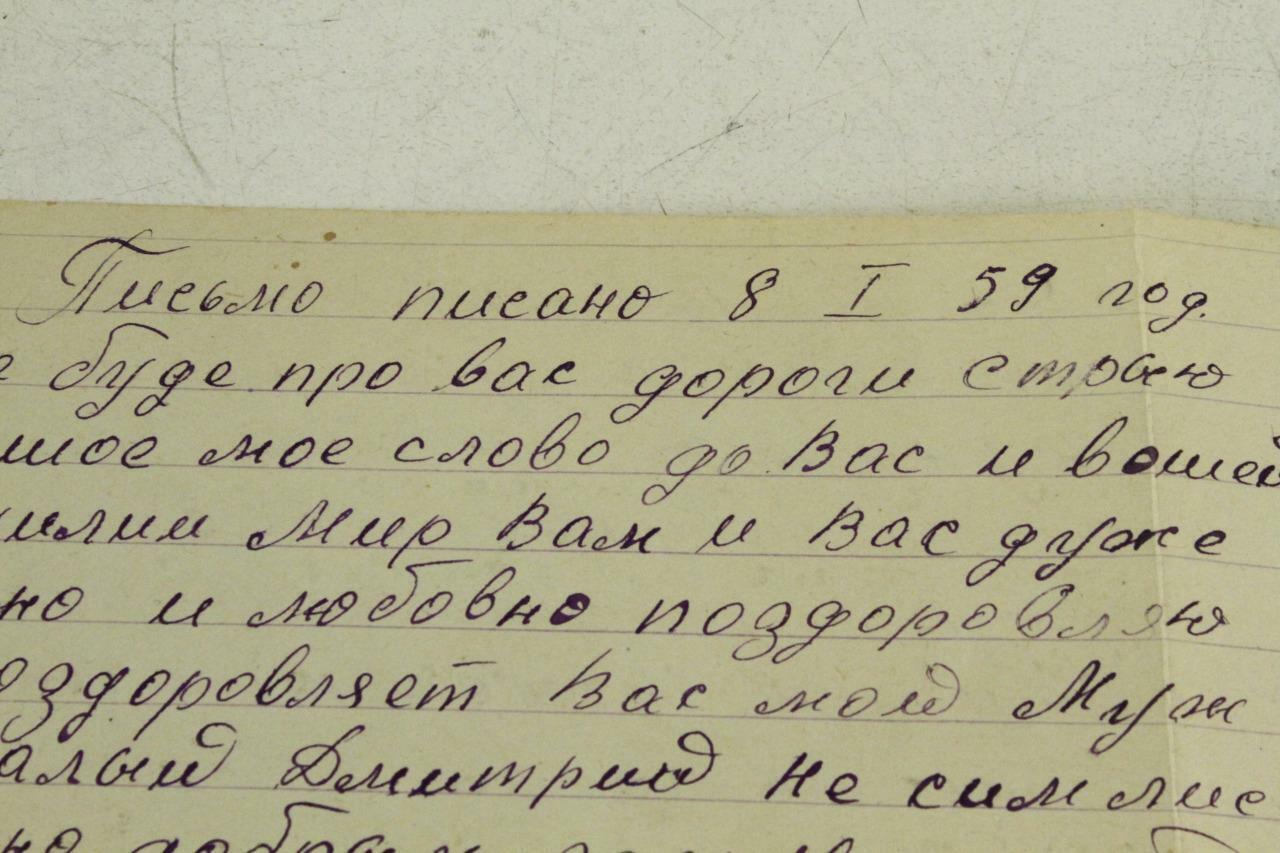 Письмо писано 8 I 59 год.
буде про вас дороги стрыю
мое слово до Вас и вашей
Мир Вам и Вас дуже
но и любовно поздоровляю
оздоровляет Вас мой Муж
алый Дмитрий не сим лис